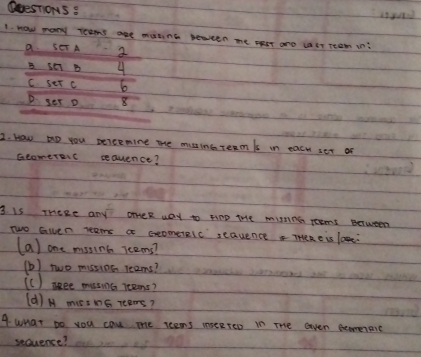 QUESTIONS:
1. How many terms are missing between the first and last term in:
a. SET A 2
B. SET B 4
C. SET C 6
D. SET D 8
2. How did you determine the missing term/s in each set of
Geometric sequence?
3. Is there any other way to find the missing terms between
two given terms a geometric sequence There is
(a) one missing terms?
(b) two missing terms?
(c) three missing terms?
(d) N missing terms?
4. What do you call the terms inserted in the given geometric
sequence?